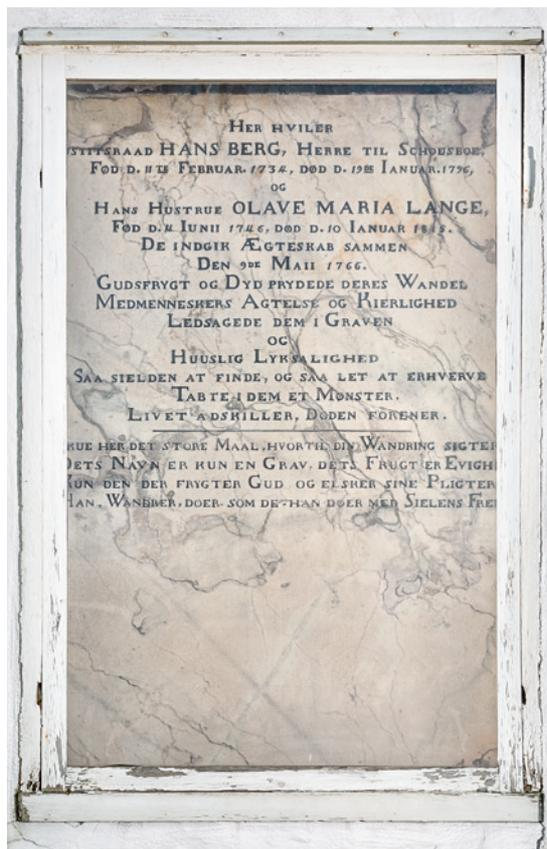 HER HVILER
STITSRAAD HANS BERG, HERRE TIL SCHOUSBOE,
FØD D. 11TE FEBRUAR. 1734, DØD D. 19DE IANUAR. 1796,
OG
HANS HUSTRUE OLAVE MARIA LANGE,
FØD D. IUNII 1746, DØD D. 10 IANUAR
DE INDGIK ÆGTESKAB SAMMEN
DEN 9DE MAII 1766.
GUDSFRYGT OG DYD PRYDEDE DERES WANDEL
MEDMENNESKERS AGTELSE OG KIERLIGHED
LEDSAGEDE DEM I GRAVEN
OG
HUUSLIG LYKSALIGHED
SAA SIELDEN AT FINDE, OG SAA LET AT ERHVERVE
TABTE I DEM ET MØNSTER.
LIVET ADSKILLER, DØDEN FORENER.
KUE HER DET STORE MAAL, HVORTIL DIN WANDRING SIGTER
DETS NAVN ER KUN EN GRAV, DETS FRUGT ER EVIGH
KUN DEN DER FRYGTER GUD OG ELSKER SINE PLIGTER
HAN, WANDRER, DOER SOM DE HAN DOER MED SIELENS FRE